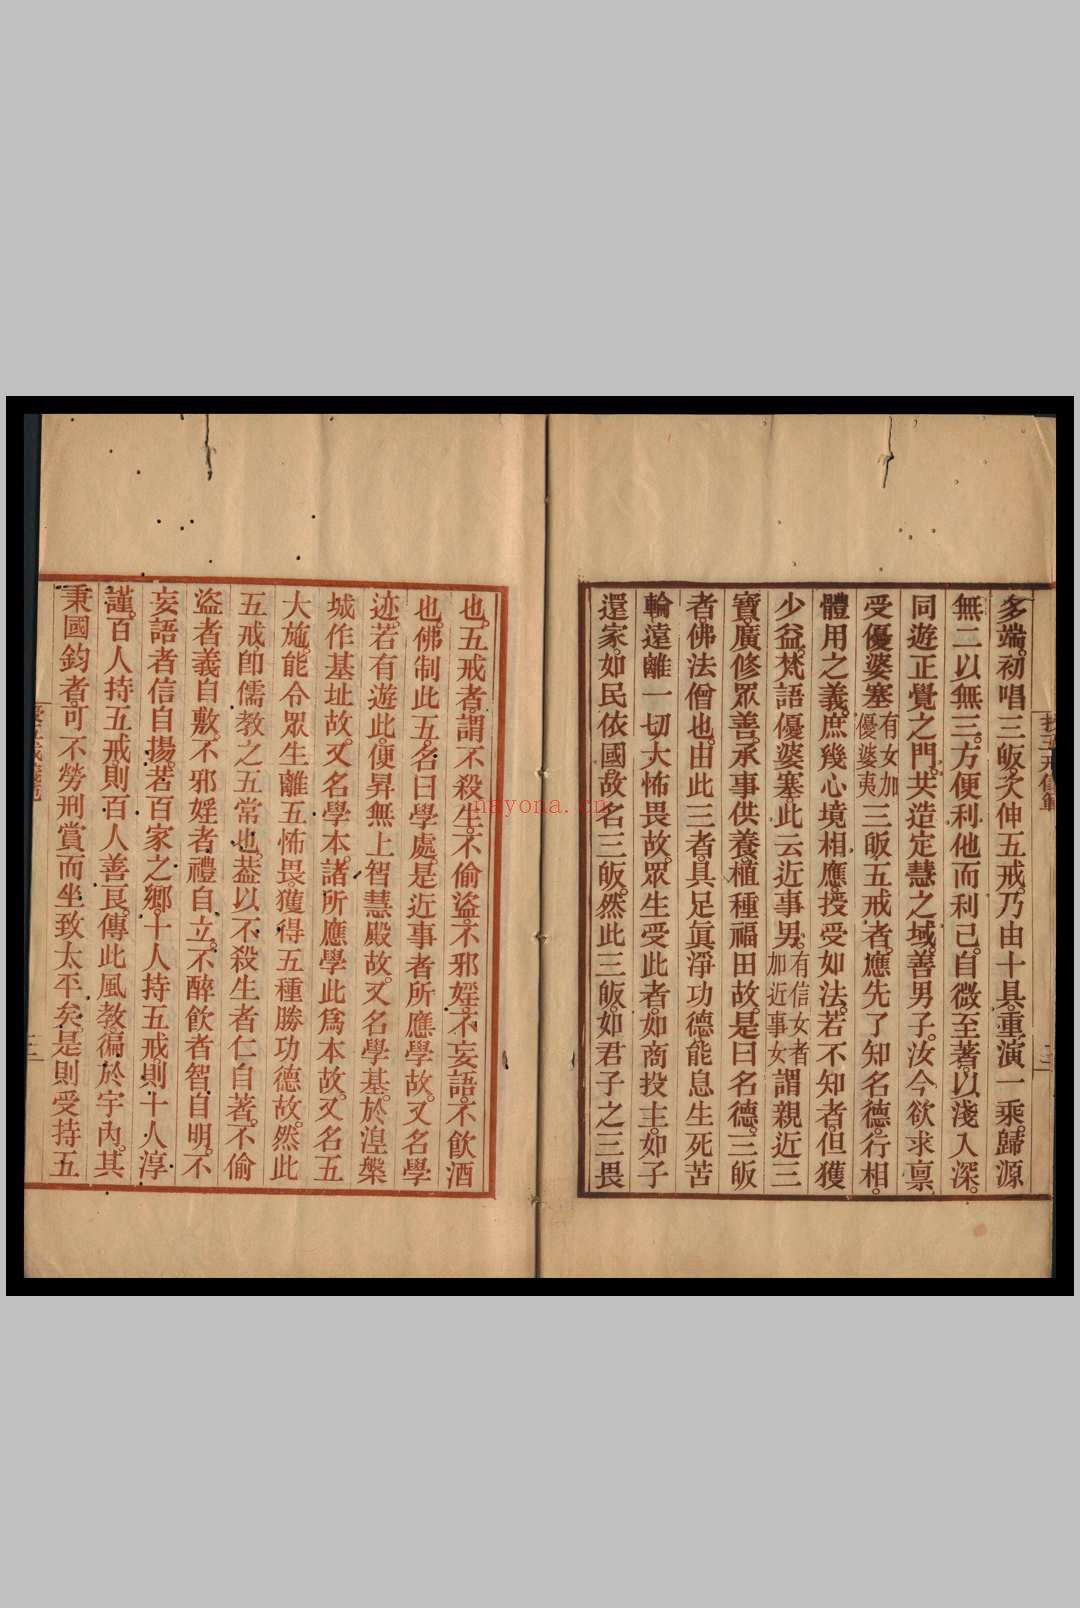 多端。初唱三皈。次伸五戒。乃由十具。重演一乘。歸源
無二以無三。方便利他而利己。自微至著。以淺入深。
同遊正覺之門。共造定慧之域。善男子。汝今欲求稟
受優婆塞有女加優婆夷三皈五戒者。應先了知名德。行相。
體用之義。庶幾心境相應。授受如法。若不知者。但獲
少益。梵語優婆塞。此云近事男。有信女者加近事女謂親近三
寶。廣修眾善。承事供養。植種福田故。是曰名德。三皈
者。佛法僧也。由此三者。具足眞淨功德。能息生死苦
輪。遠離一切大怖畏故。眾生受此者。如商投主。如子
還家。如民依國。故名三皈。然此三皈。如君子之三畏
也。五戒者。謂不殺生。不偷盜。不邪婬。不妄語。不飲酒
也。佛制此五。名曰學處。是近事者所應學故。又名學
迹。若有遊此。便昇無上智慧殿故。又名學基。於涅槃
城作基址故。又名學本。諸所應學此爲本故。又名五
大施。能令眾生離五怖畏。獲得五種勝功德故。然此
五戒。卽儒教之五常也。葢以不殺生者仁自著。不偷
盜者義自敷。不邪婬者禮自立。不醉飲者智自明。不
妄語者信自揚。若百家之鄉。十人持五戒。則十人淳
謹。百人持五戒。則百人善良。傳此風教。徧於宇內。其
秉國鈞者。可不勞刑賞。而坐致太平矣。是則受持五